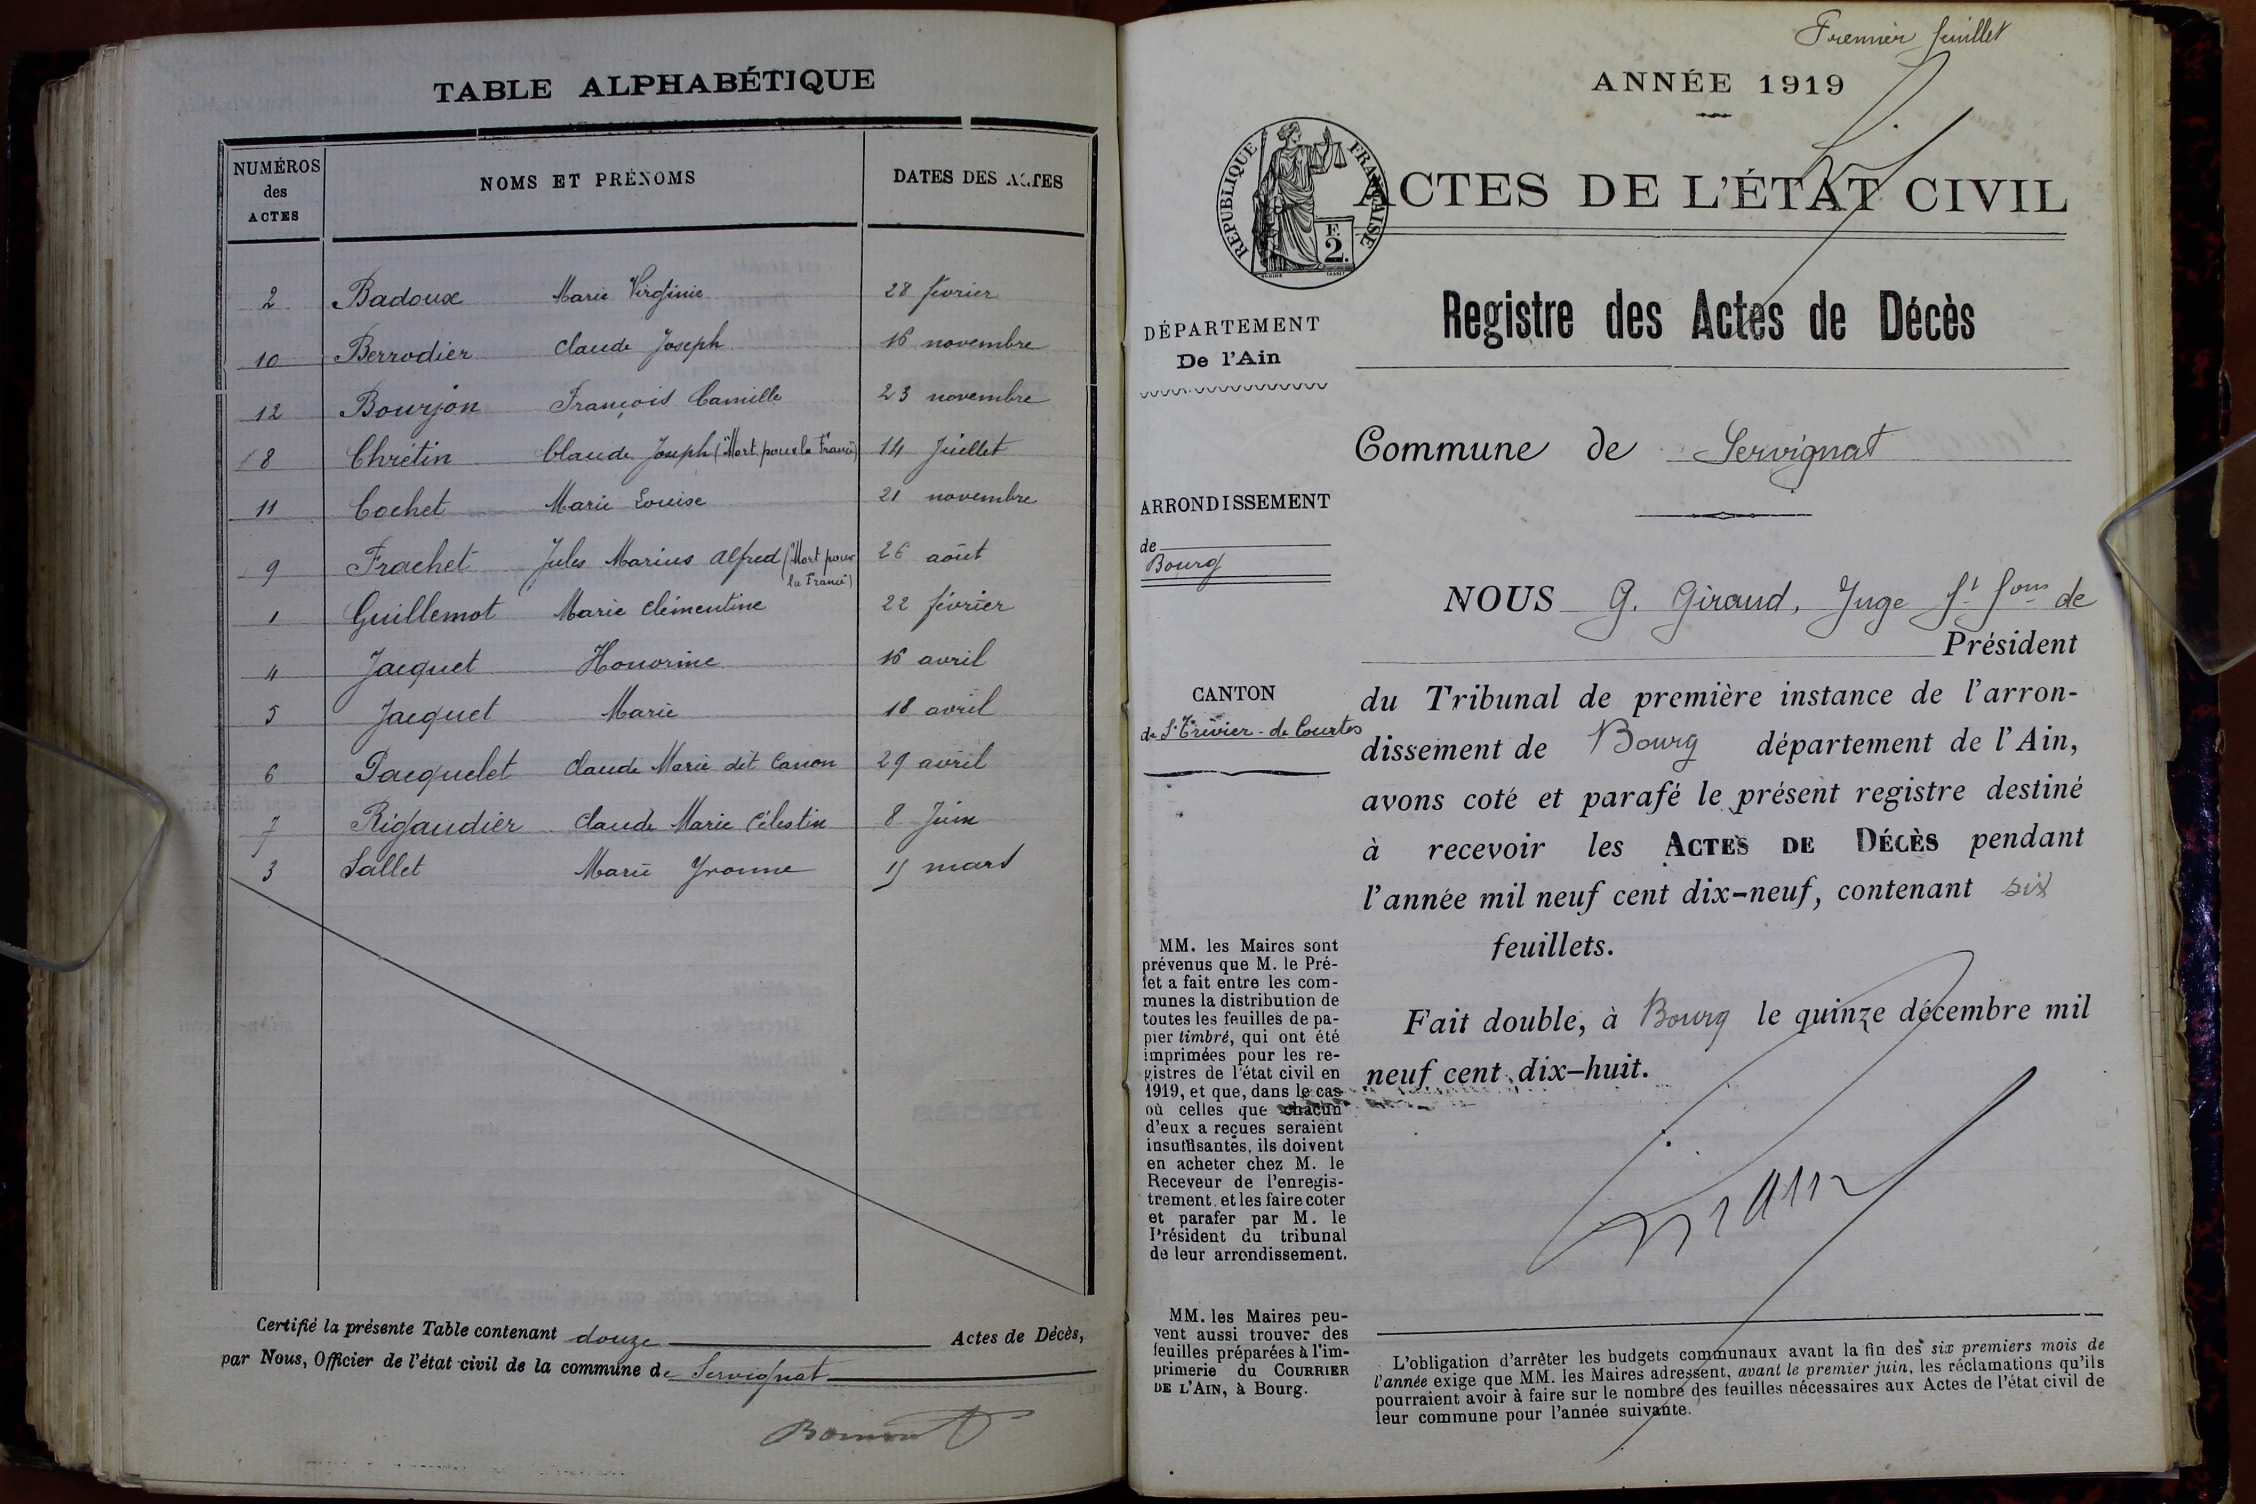 TABLE ALPHABÉTIQUE
NUMÉROS des ACTES
NOMS ET PRÉNOMS
DATES DES ACTES
2 Badoux Marie Virginie 28 février
10 Berrodier Claude Joseph 16 novembre
12 Bourjon François Camille 23 novembre
8 Chrétin Claude Joseph ("Mort pour la France") 14 Juillet
11 Cochet Marie Louise 21 novembre
9 Frachet Jules Marius Alfred ("Mort pour la France") 26 août
1 Guillemot Marie Clémentine 22 février
4 Jacquet Honorine 16 avril
5 Jacquet Marie 18 avril
6 Pacquelet Claude Marie dit Canon 29 avril
7 Rigaudier Claude Marie Célestin 8 Juin
3 Sallet Marie Yvonne mars
Certifié la présente Table contenant douze Actes de Décès,
par Nous, Officier de l'état civil de la commune de Servignat
Premier feuillet
ANNÉE 1919
RÉPUBLIQUE FRANÇAISE
F. 2.
ACTES DE L'ÉTAT CIVIL
Registre des Actes de Décès
DÉPARTEMENT
De l'Ain
Commune de Servignat
ARRONDISSEMENT
de
Bourg
NOUS G. Giraud, Juge ft fons de
Président
CANTON
de St Trivier-de Courtes
du Tribunal de première instance de l'arron-
dissement de Bourg département de l'Ain,
avons coté et parafé le présent registre destiné
à recevoir les ACTES DE DÉCÈS pendant
l'année mil neuf cent dix-neuf, contenant six
feuillets.
Fait double, à Bourg le quinze décembre mil
neuf cent dix-huit.
MM. les Maires sont
prévenus que M. le Pré-
fet a fait entre les com-
munes la distribution de
toutes les feuilles de pa-
pier timbré, qui ont été
imprimées pour les re-
gistres de l'état civil en
1919, et que, dans le cas
où celles que chacun
d'eux a reçues seraient
insuffisantes, ils doivent
en acheter chez M. le
Receveur de l'enregis-
trement, et les faire coter
et parafer par M. le
Président du tribunal
de leur arrondissement.
MM. les Maires peu-
vent aussi trouver des
feuilles préparées à l'im-
primerie du COURRIER
DE L'AIN, à Bourg.
L'obligation d'arrêter les budgets communaux avant la fin des six premiers mois de
l'année exige que MM. les Maires adressent, avant le premier juin, les réclamations qu'ils
pourraient avoir à faire sur le nombre des feuilles nécessaires aux Actes de l'état civil de
leur commune pour l'année suivante.